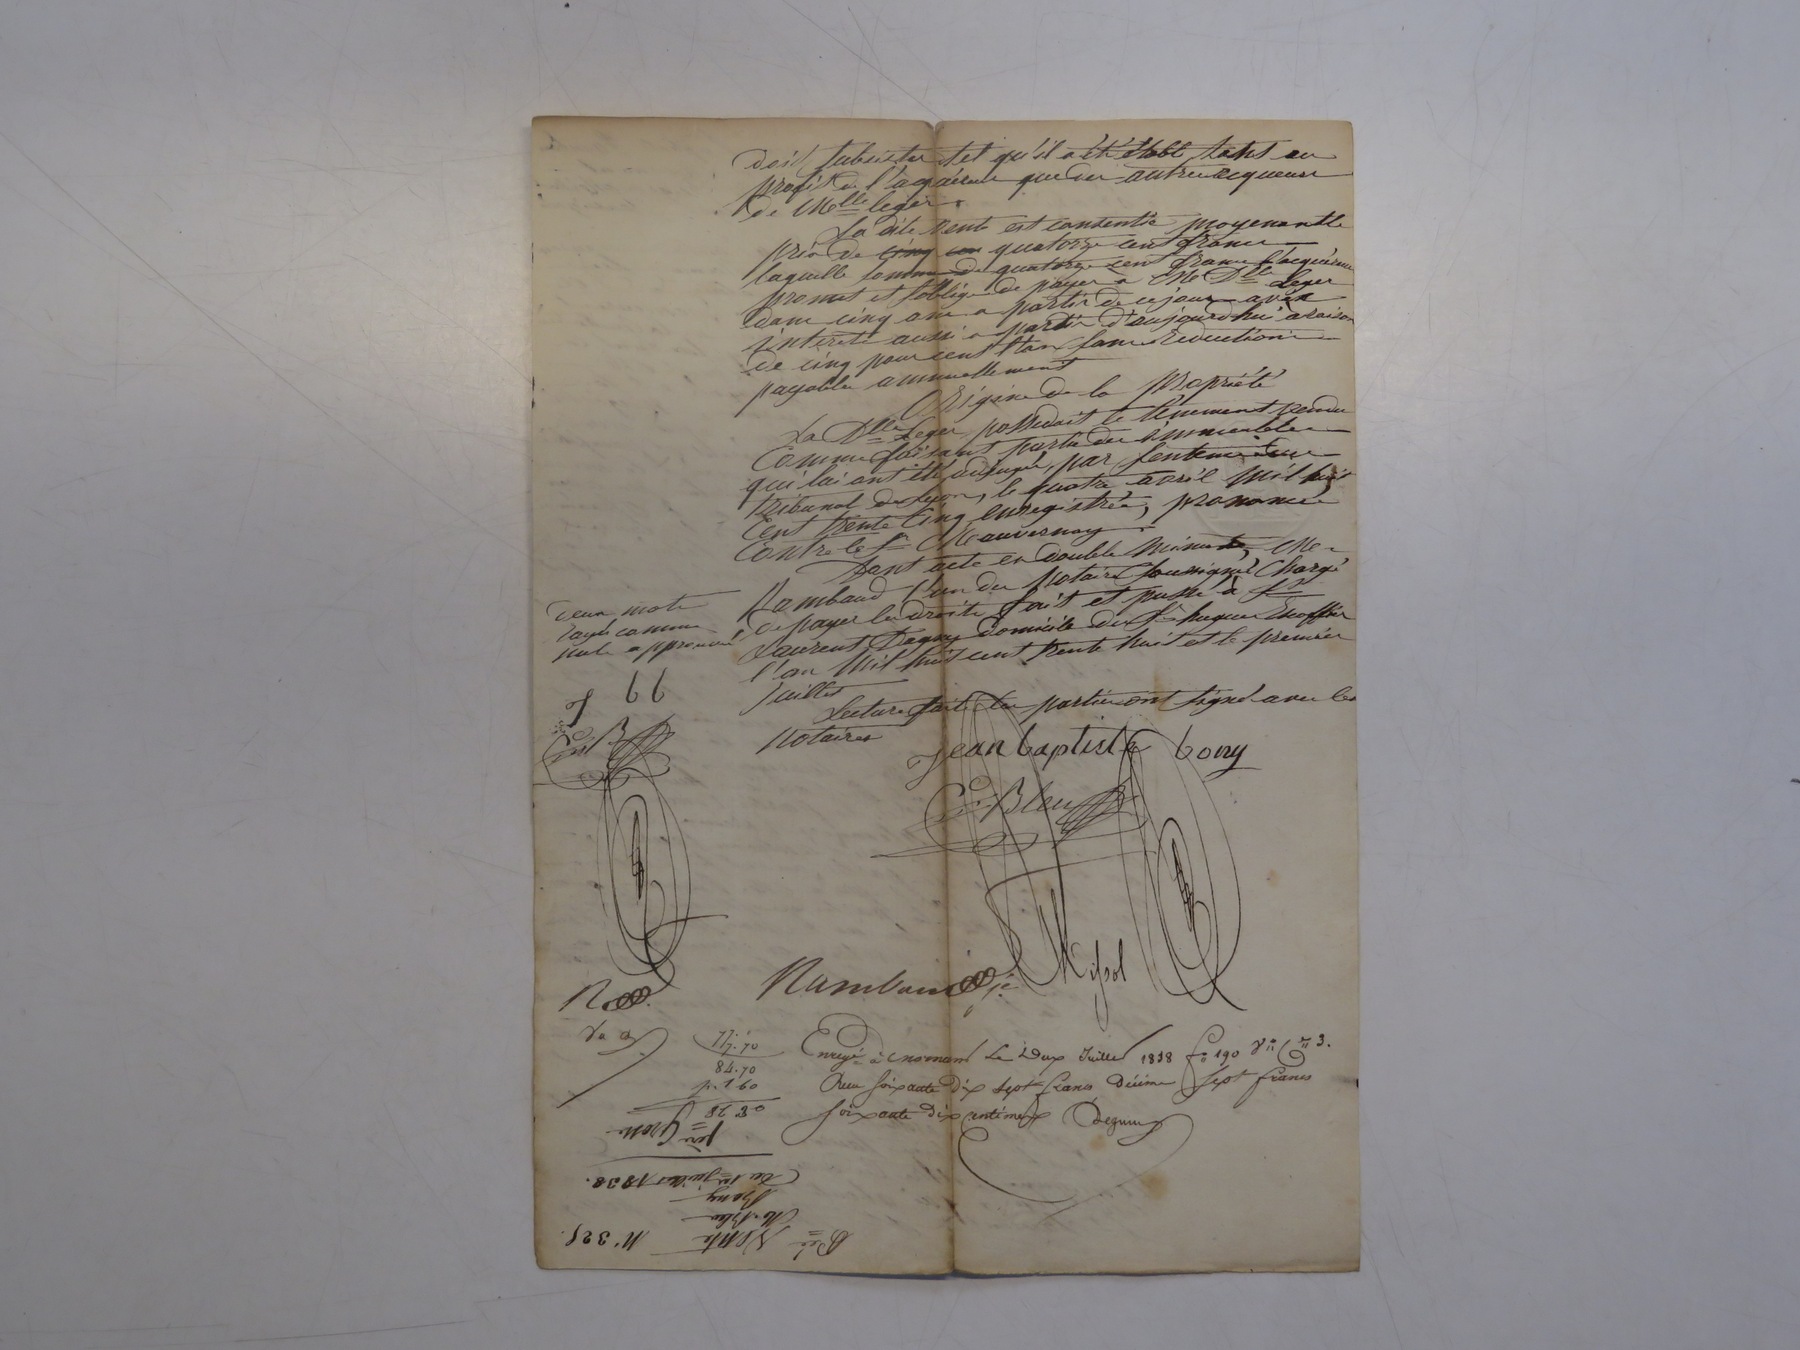 doit subsister tel qu'il a été établi tant au
profit de l'acquéreur que des autres acquéreurs
de Melle Leger.
La dite vente est consentie moyenant le
prix de cinq cen quatorze cent francs
laquelle somme de quatorze cent francs l'acquéreur
promet et s'oblige de payer a Me Dlle Leger
dans cinq ans a partir de ce jour avec
intérêts aussi a partir d'aujourd'hui a raison
de cinq pour cent l'an sans réduction
payable annuellement
Origine de la propriété
La Dlle Leger possedait le tènement vendu
Comme faisant partie des immeubles
qui lui ont été adjugés, par sentence du
tribunal de Lyon, le quatre avril Mil huit
Cent trente Cinq enregistrée, prononcée
Contre le Sr Mauvernay.
Dont acte en double minute, Me
Rambaud l'un des Notaires soussignés Chargé
de payer les droits fait et passé à St
Laurent Dagny domicile de Sr hugues Escoffier
l'an Mil huit cent trente huit et le premier
Juillet
Lecture faite les parties ont signé avec les
Notaires
deux mots
rayés comme
nuls approuvés
J b b
jean baptiste bony
C. Bleu
Rambaud
Enregé à mornant le deux Juillet 1838 fo 190 Vo Cse 3.
Reçu soixante dix sept francs décime sept francs
soixante dix centimes
77.
7.70
84.70
p. 1 60
86 30
1ère Grosse
du 1er juillet 1838.
Bony
Vente
N° 325.